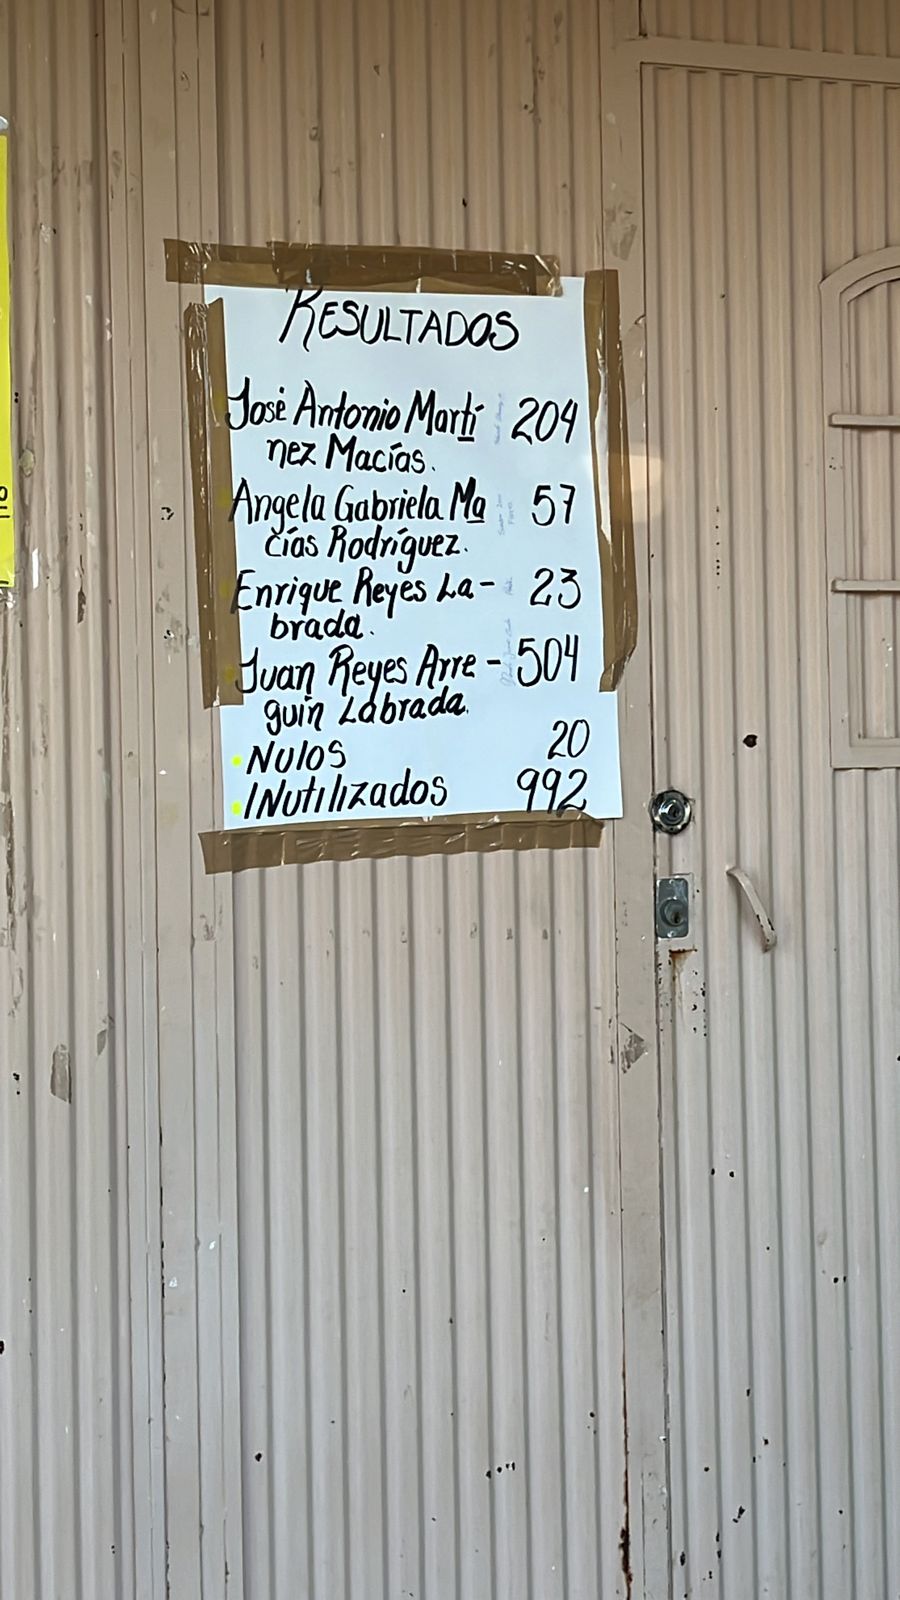 RESULTADOS
José Antonio Martí 204
nez Macías.
Angela Gabriela Ma 57
cías Rodríguez.
Enrique Reyes La- 23
brada.
Juan Reyes Arre - 504
guin Labrada.
• NULOS 20
• INutilizados 992